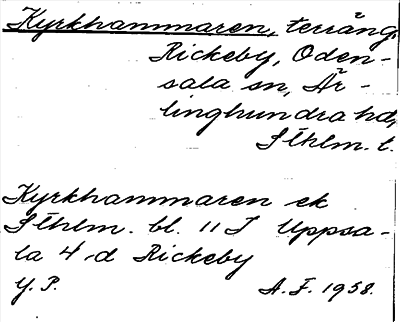 Kyrkhammaren, terräng.
Rickeby, Oden-
sala sn, Är-
linghundra hd,
Sthlm. l.
Kyrkhammaren ek
Sthlm. bl. 11 I Uppsa-
la 4 d Rickeby
Y. P. A. F. 1958.